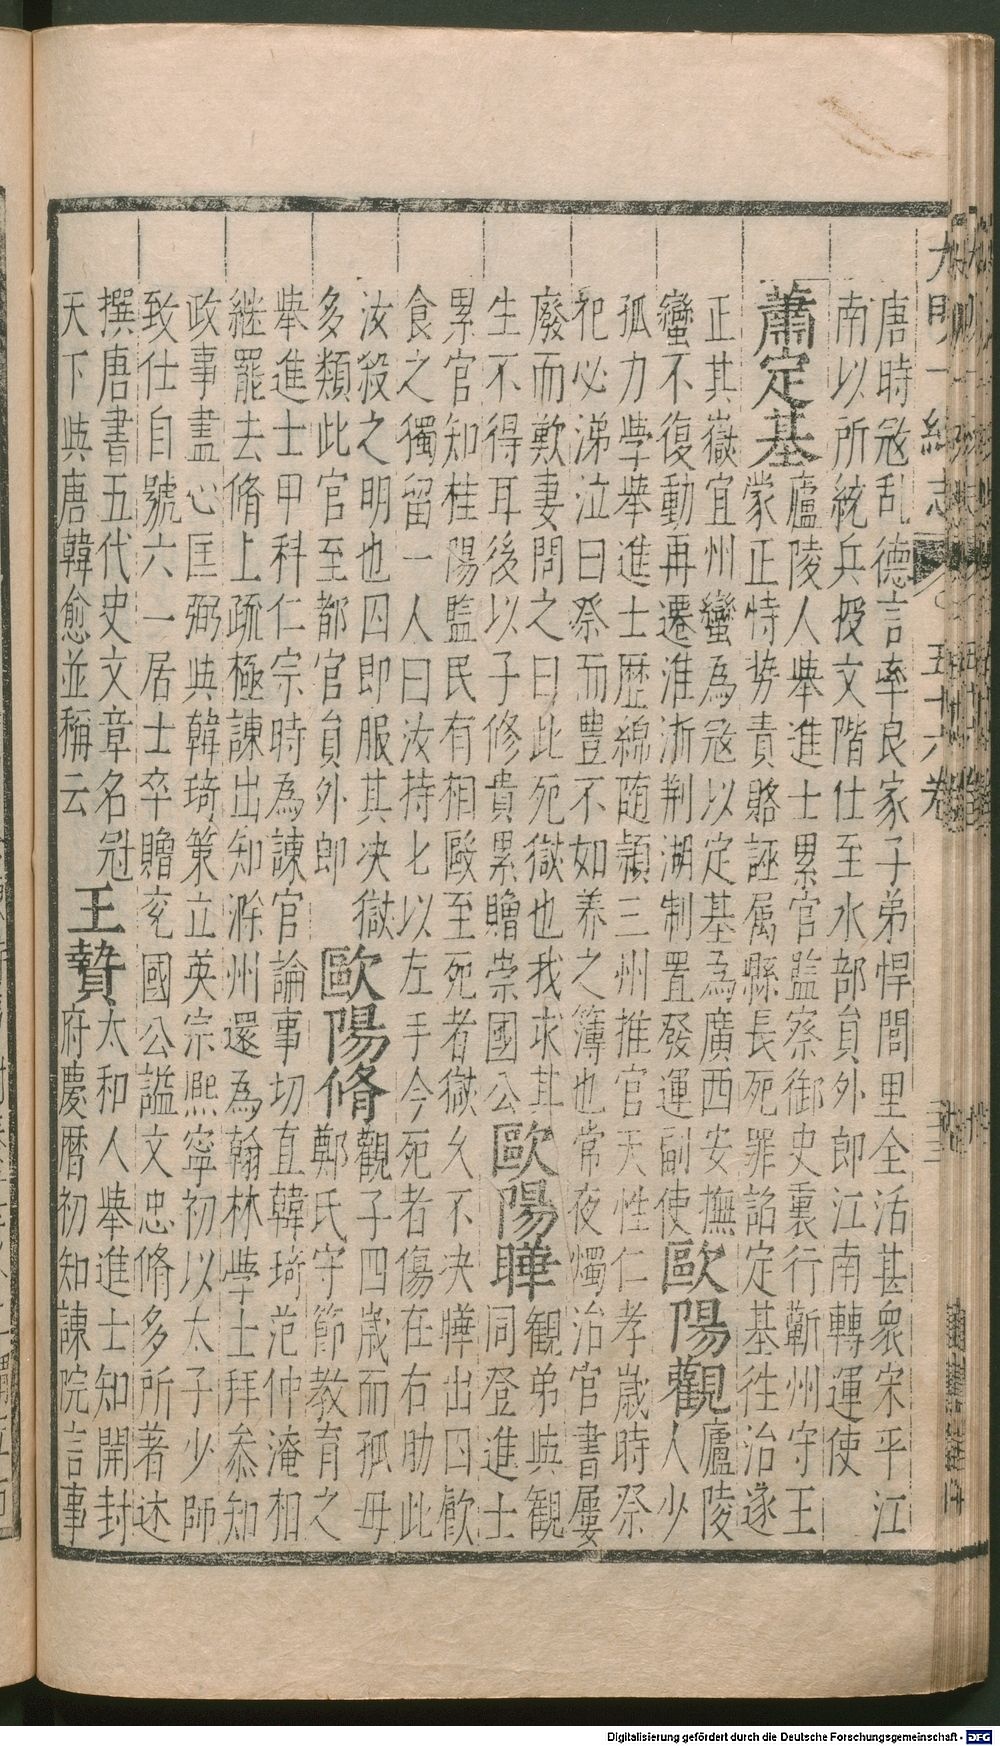 大明一統志 五十六卷
唐時㓂乱德言率良家子弟悍閭里全活甚衆宋平江
南以所統兵授文階仕至水部員外郎江南轉運使
蕭定基
廬陵人舉進士累官監察御史裏行蘄州守王
蒙正恃势責賂誣属縣長死罪詔定基徃治遂
正其獄宜州蠻為㓂以定基為廣西安撫
蠻不復動再遷淮浙荆湖制置發運副使
歐陽觀
廬陵
人少
孤力學舉進士歷綿随潁三州推官天性仁孝歲時祭
祀必涕泣曰祭而豊不如养之薄也常夜燭治官書屢
廢而歎妻問之曰此死獄也我求其
生不得耳後以子修貴累贈崇國公
歐陽曄
觀弟與觀
同登進士
累官知桂陽監民有相毆至死者獄久不决曄出囚飲
食之獨留一人曰汝持匕以左手今死者傷在右肋此
汝殺之明也囚即服其决獄
多類此官至都官員外郎
歐陽脩
觀子四歲而孤毋
鄭氏守節教育之
舉進士甲科仁宗時為諫官論事切直韓琦范仲淹相
継罷去脩上疏極諫出知滁州還為翰林學士拜叅知
政事盡心匡弼與韓琦策立英宗熙寧初以太子少師
致仕自號六一居士卒贈兖國公謚文忠脩多所著述
撰唐書五代史文章名冠
天下與唐韓愈並稱云
王贄
太和人舉進士知開封
府慶暦初知諫院言事
Digitalisierung gefördert durch die Deutsche Forschungsgemeinschaft - DFG